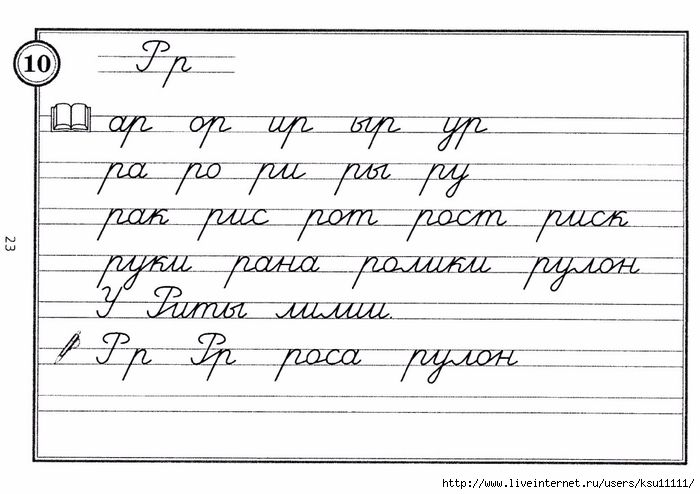 10
Рр
ар ор ир ыр ур
ра ро ри ры ру
рак рис рот рост риск
руки рана ролики рулон
У Риты лилии.
Рр Рр роса рулон
23
http://www.liveinternet.ru/users/ksu11111/